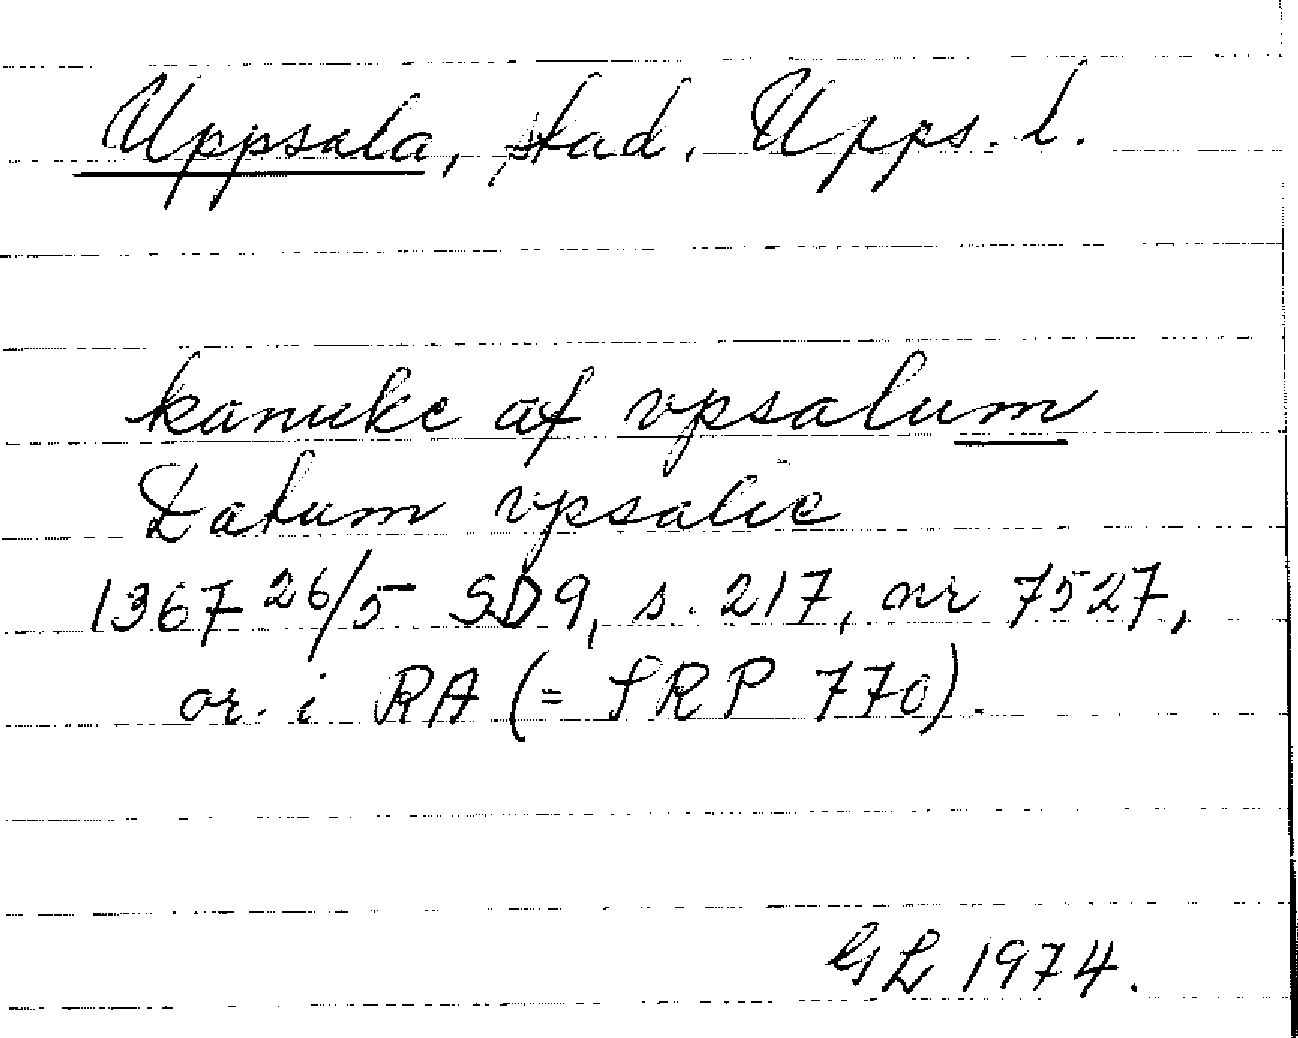 Uppsala, stad, Upps. l.
kanuke af vpsalum
Datum vpsalie
1367 26/5 SD9, s. 217, nr 7527,
or. i RA (= SRP 770).
GL 1974.